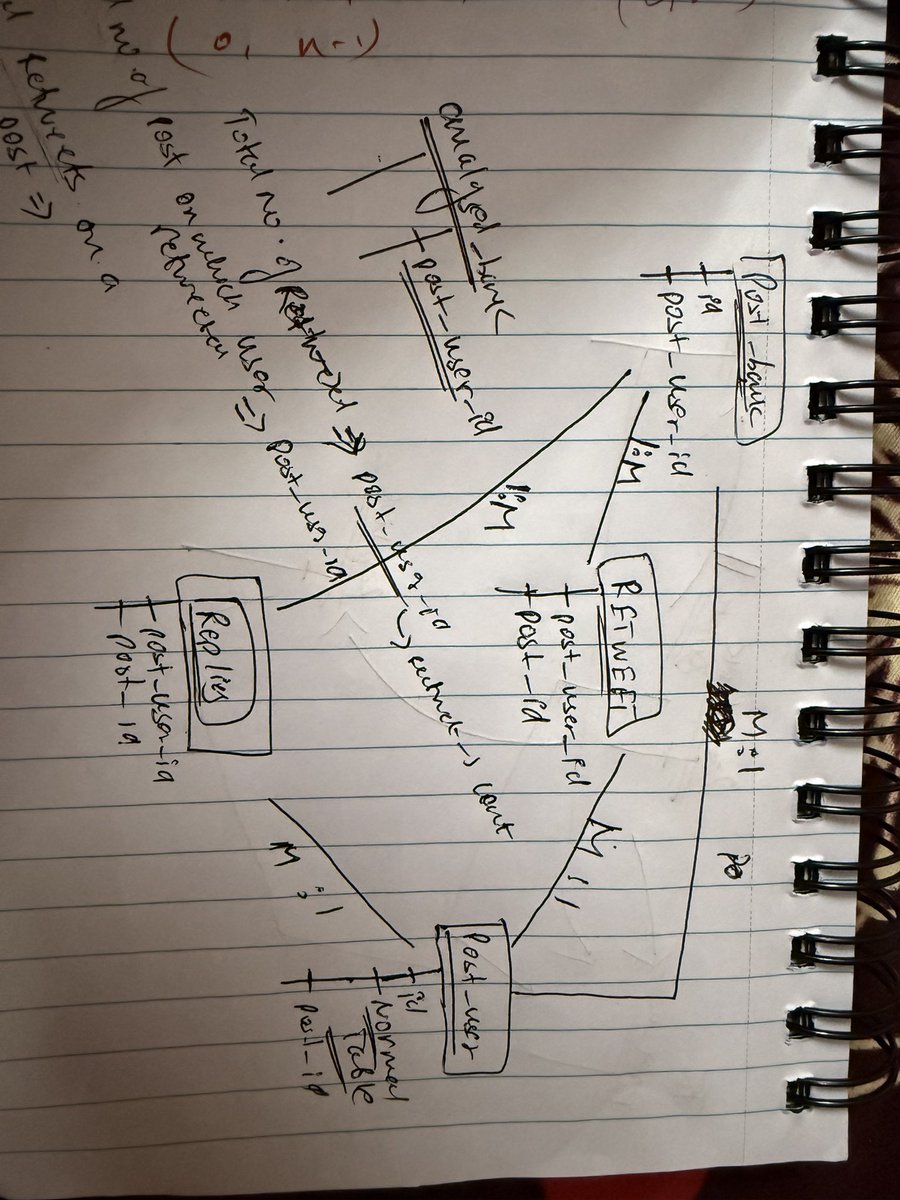 (0, n-1)
Post_bank
id
post_user_id
M:1
1:M
RETWEET
post_user_id
post_id
M:1
Post_user
id
Normal
Table
post_id
1:M
Replies
post_user_id
post_id
M:1
analysed_bank
post_user_id
Total no. of Retweet => post_user_id -> retweet -> count
no. of post on which user => post_user_id
retweeted
retweets on a
post =>